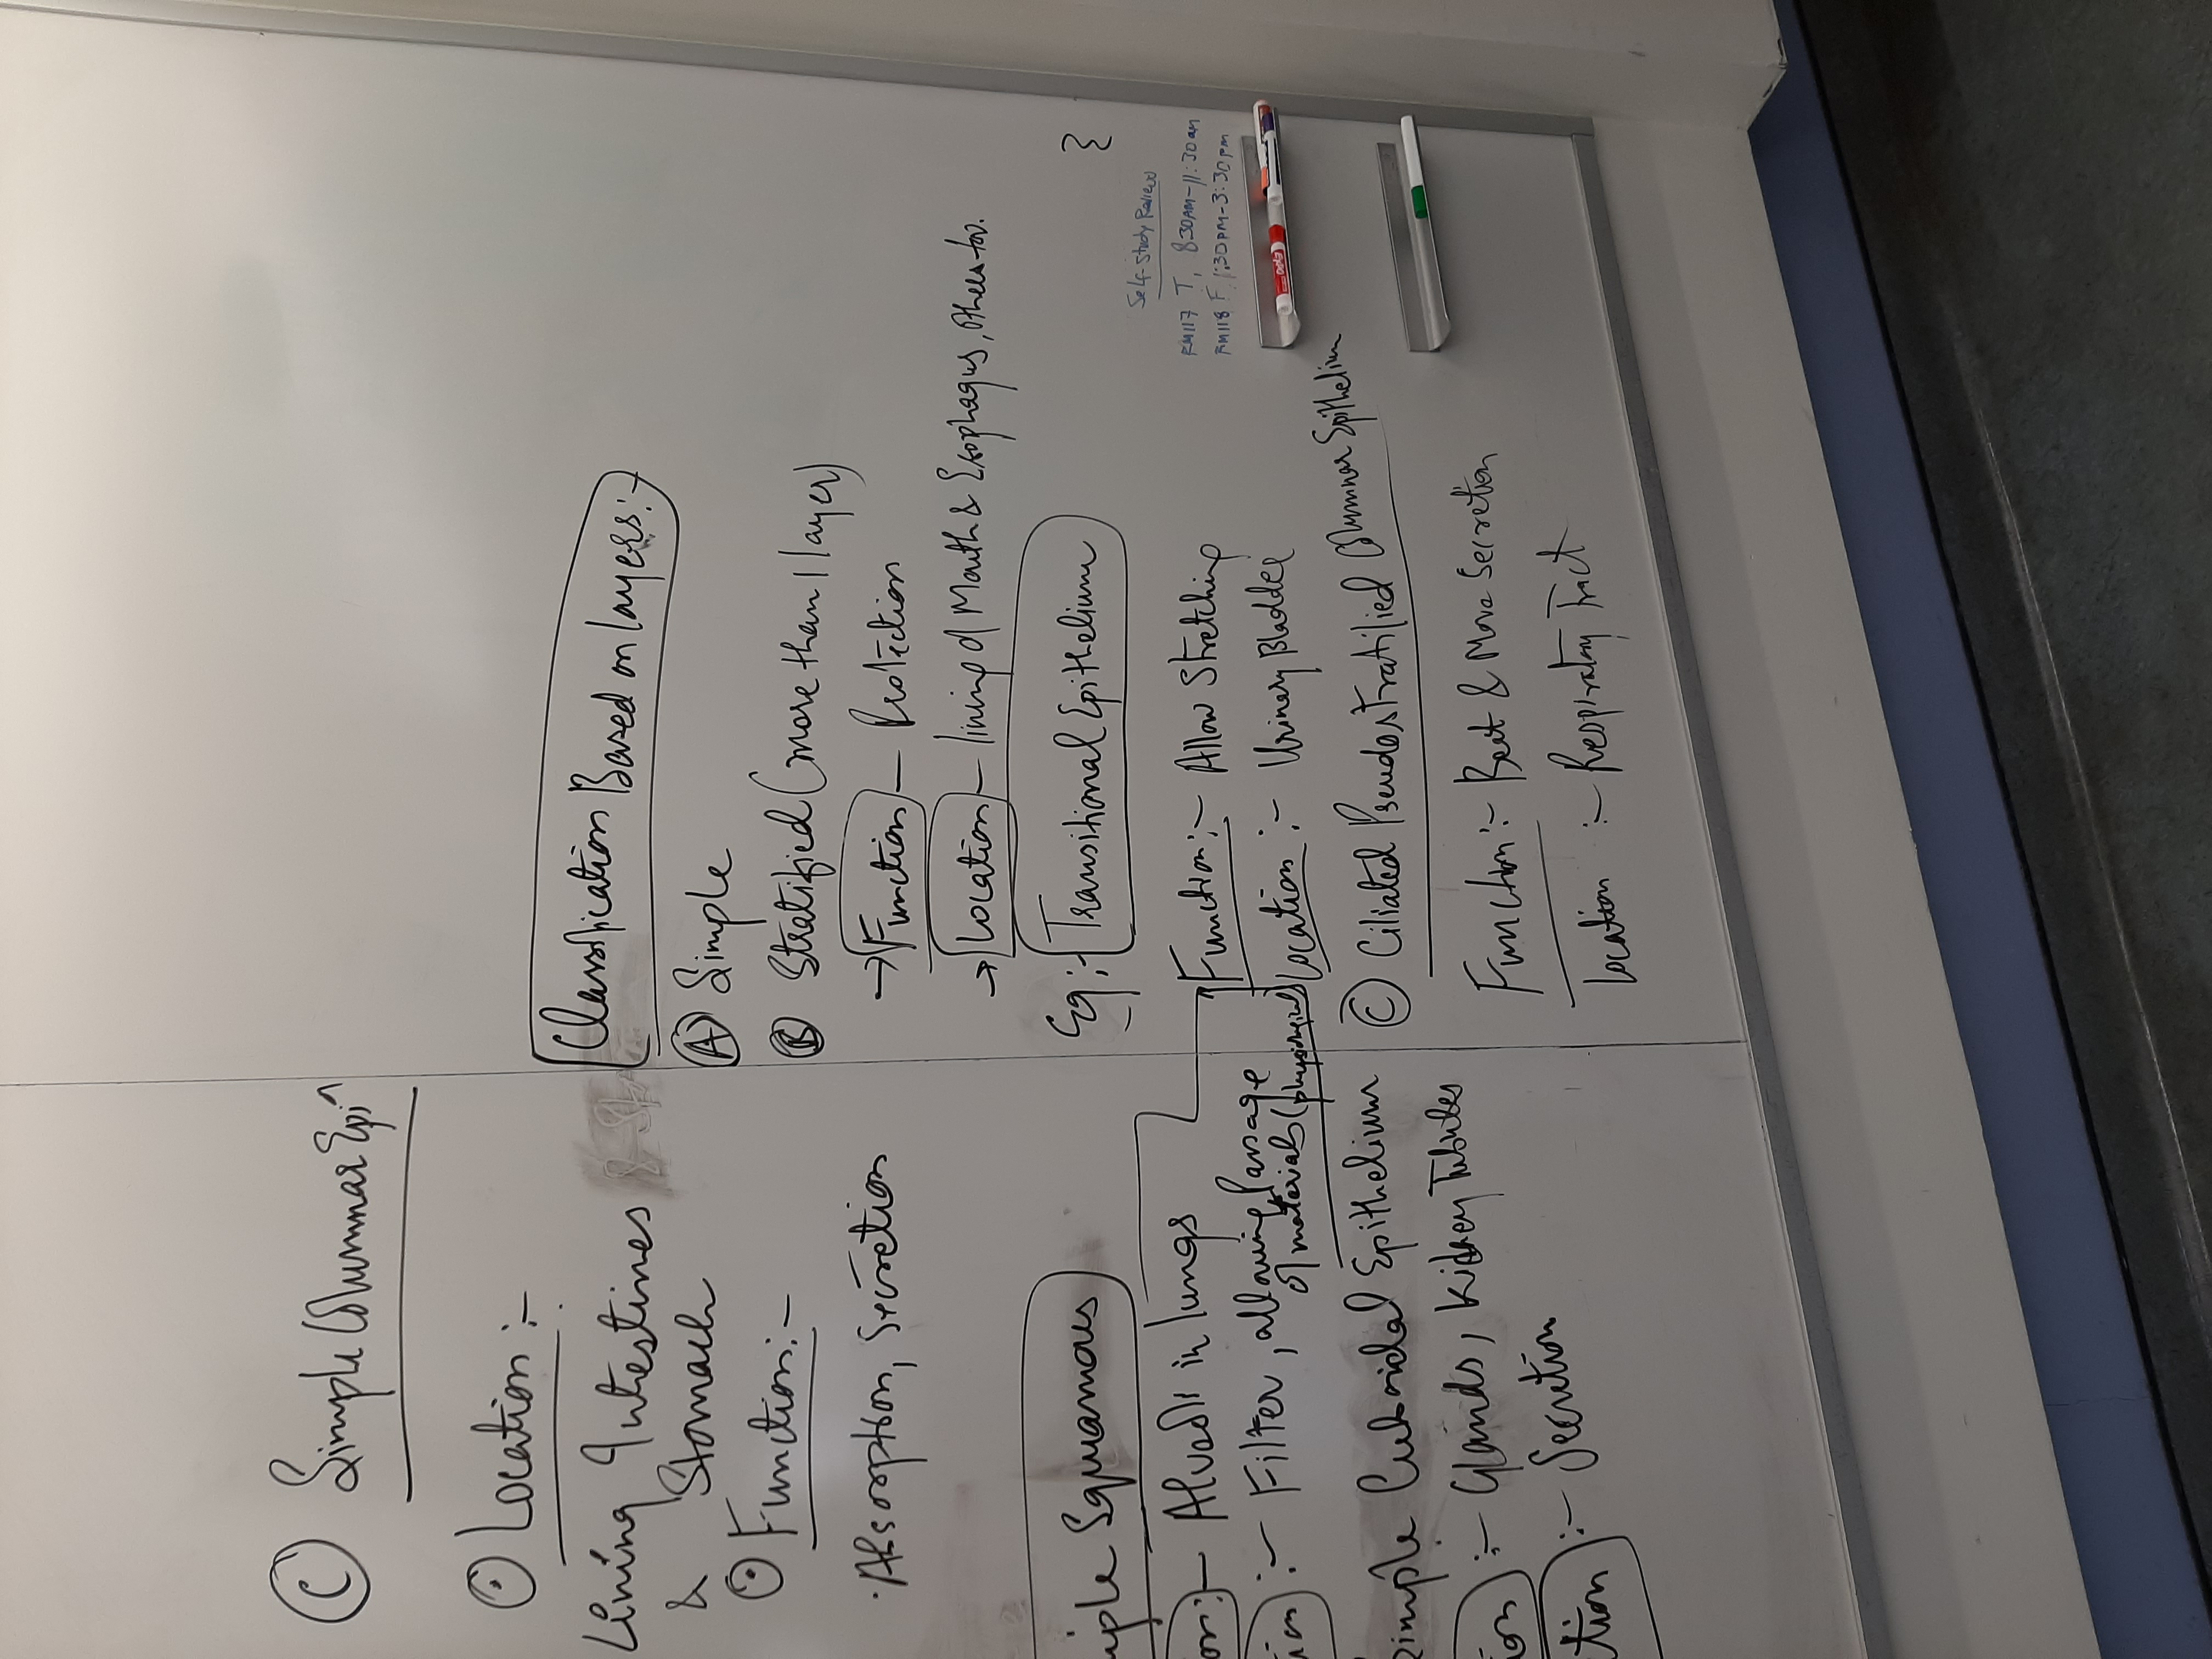 C Simple Columnar Epi^
Location :-
Lining Intestines
& Stomach
Function :-
Absorption, Secretion
Simple Squamous
:- Alveoli in lungs
:- Filter, allowing Passage
of materials
Simple Cuboidal Epithelium
:- Glands, Kidney Tubules
:- Secretion
Classification Based on layers :-
A Simple
B Stratified (more than 1 layer)
→ Function - Protection
→ Location - lining of Mouth & Esophagus,
Eg :- Transitional Epithelium
Function :- Allow Stretching
Location :- Urinery Bladder
C Ciliated PseudosTratified Columnar Epithelium
Function :- Beat & Move Secretion
Location :- Respiratory Tract
Self-Study Review
RM117 T, 8:30AM-11:30am
RM118 F, 1:30PM-3:30pm
EXPO